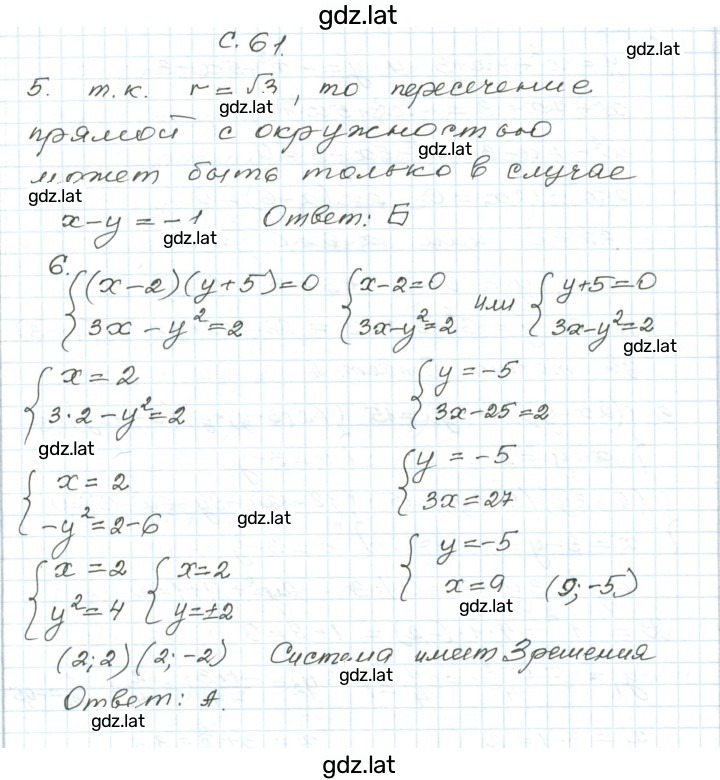 gdz.lat
с. 61.
gdz.lat
5. т.к. r = √3, то пересечение
gdz.lat
прямой с окружностью
gdz.lat
может быть только в случае
gdz.lat
x-y = -1 Ответ: Б
gdz.lat
6. {(x-2)(y+5)=0 {x-2=0 или {y+5=0
3x-y²=2 3x-y²=2 3x-y²=2
gdz.lat
{x=2 {y=-5
3·2-y²=2 3x-25=2
gdz.lat
{x=2 {y=-5
-y²=2-6 3x=27
gdz.lat
{x=2 {x=2 {y=-5
y²=4 y=±2 x=9 (9;-5)
gdz.lat
(2;2) (2;-2) Система имеет 3 решения
gdz.lat
Ответ: А.
gdz.lat
gdz.lat